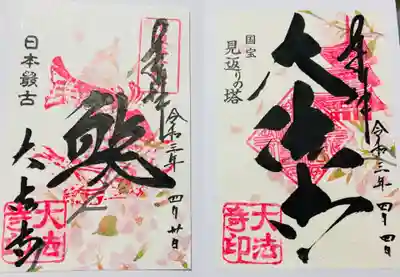 奉拝
令和三年 四月廿日
日本最古
大法寺
奉拝
令和三年
大法寺
国宝
見返りの塔
大法寺印